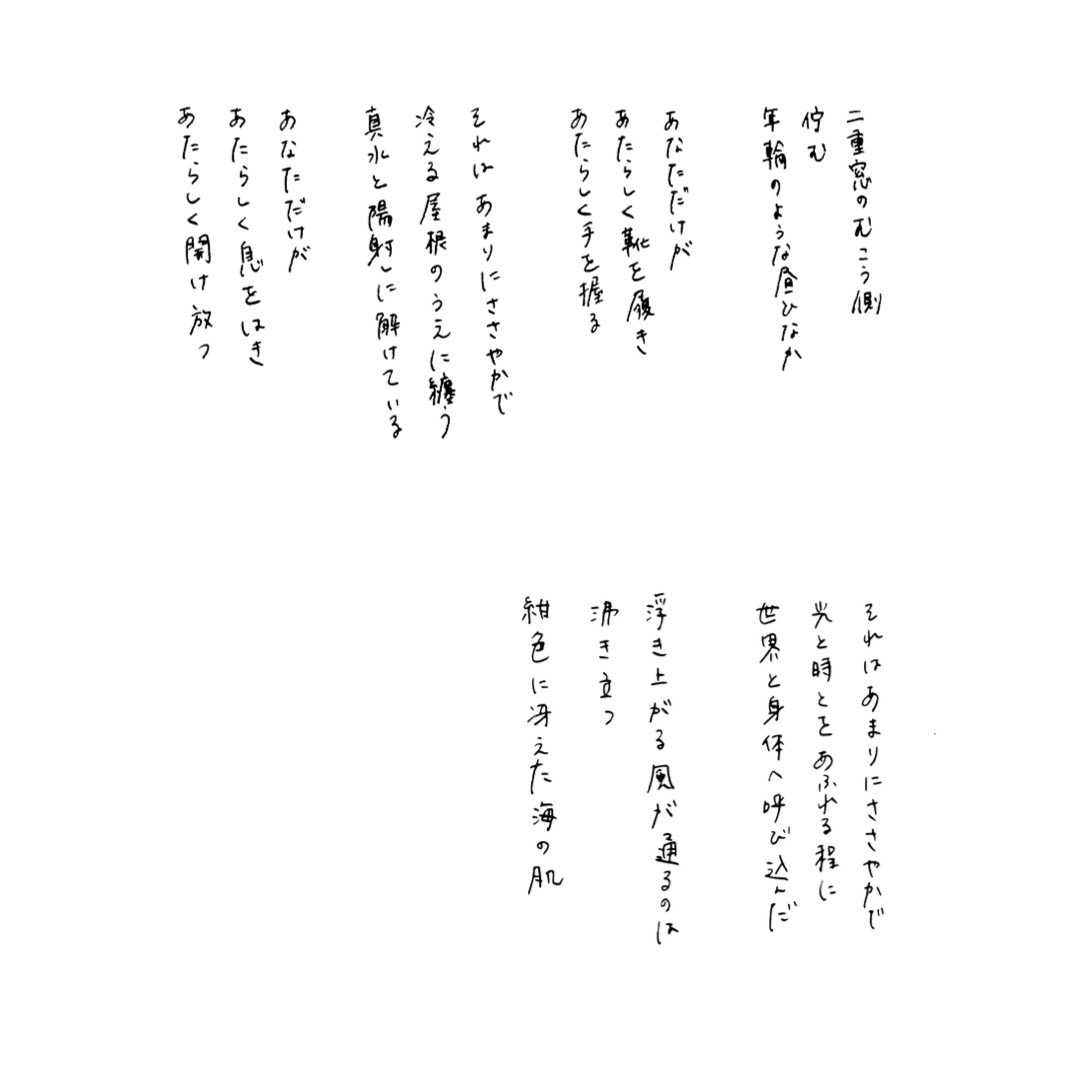 二重窓のむこう側
佇む
年輪のような昼ひなか
あなただけが
あたらしく靴を履き
あたらしく手を握る
それは あまりにささやかで
冷える屋根のうえに纏う
真水と陽射しに解けている
あなただけが
あたらしく息をはき
あたらしく開け放つ
それはあまりにささやかで
光と時とをあふれる程に
世界と身体へ呼び込んだ
浮き上がる風が通るのは
沸き立つ
紺色に冴えた海の肌